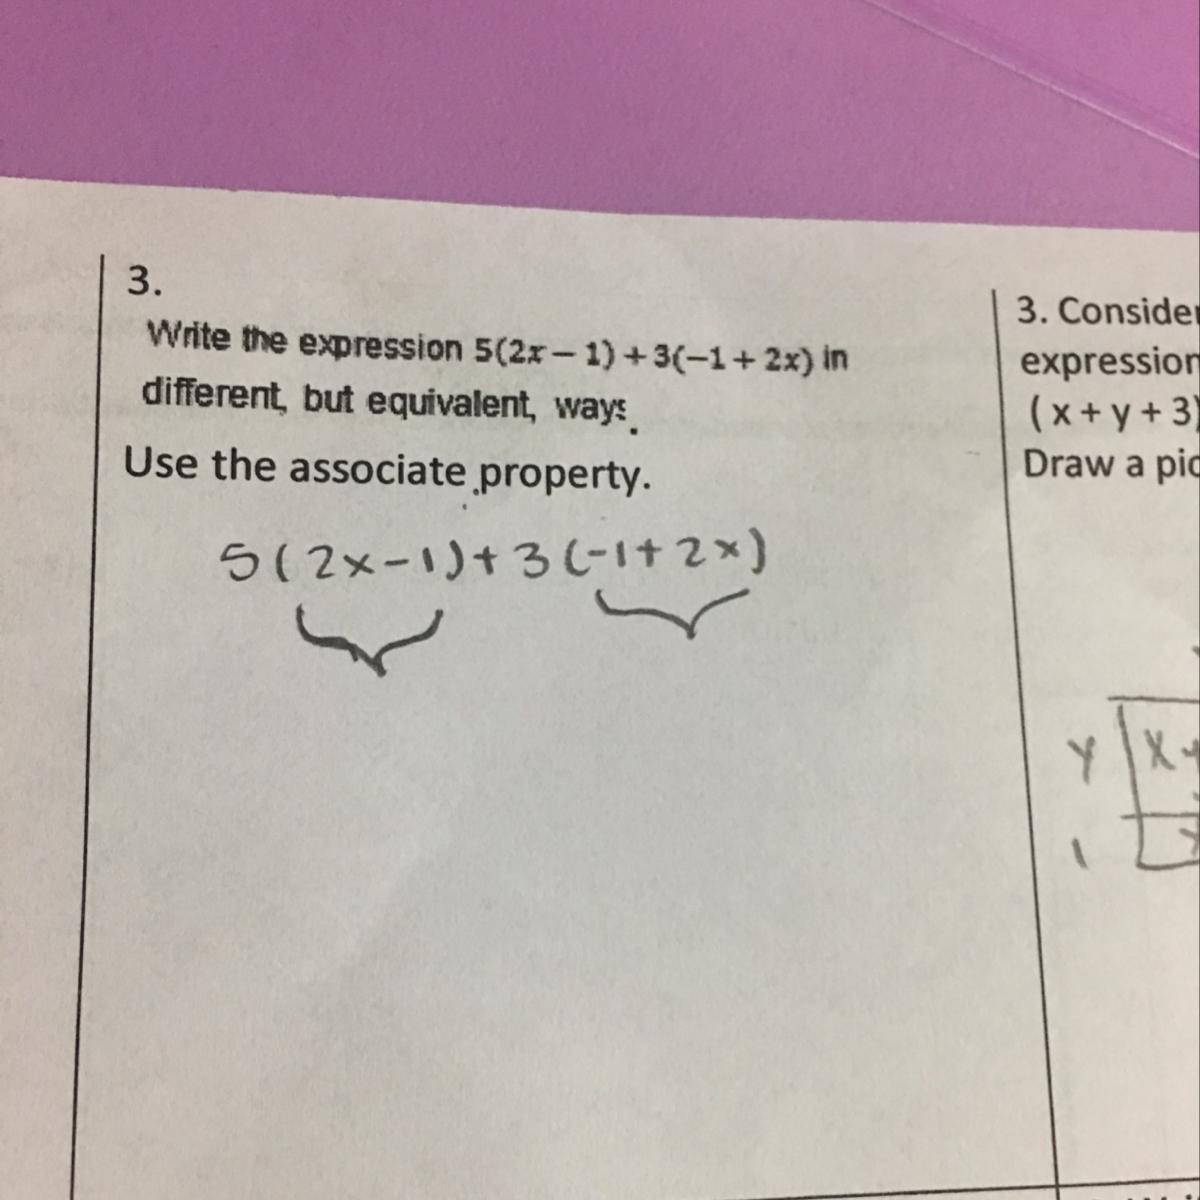 3.
Write the expression 5(2x – 1) + 3(–1 + 2x) in
different, but equivalent, ways.
Use the associate property.
5(2x-1)+3(-1+2x)
3. Consider
expression
(x + y + 3)
Draw a pic
y
x
1